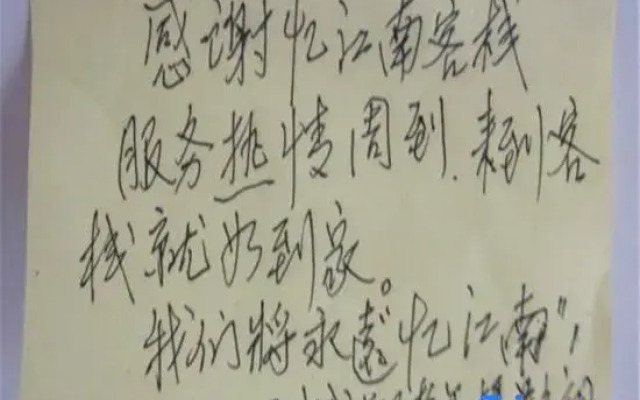 感谢忆江南客栈
服务热情周到.来到客
栈就如到家。
我们将永远“忆江南”!